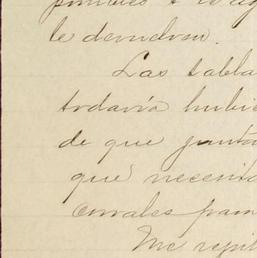 le devuelvan.
Las tabla
todavía hubie
de que junta
que necesita
corrales para
Me repit